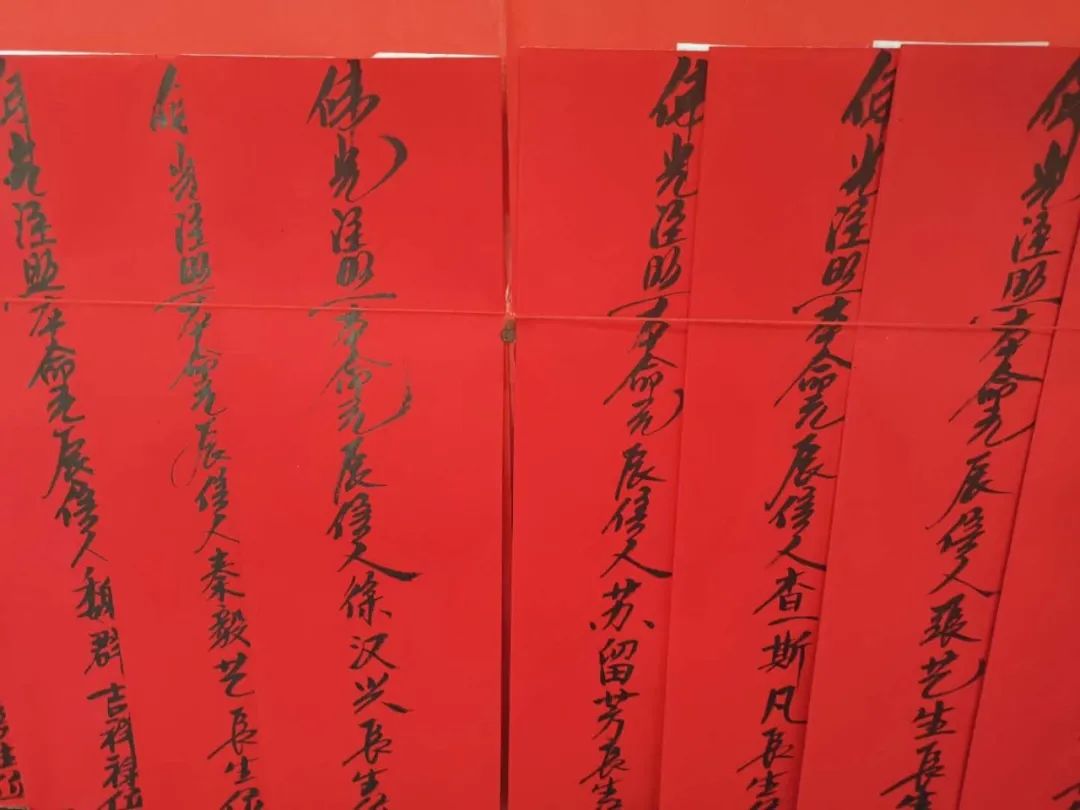 佛光注照本命元辰信人張艺生長
佛光注照本命元辰信人查斯凡長生
佛光注照本命元辰信人苏留芳長生
佛光注照本命元辰信人徐汉兴長生
佛光注照本命元辰信人秦毅艺長生位
佛光注照本命元辰信人魏群吉祥禄位
生位